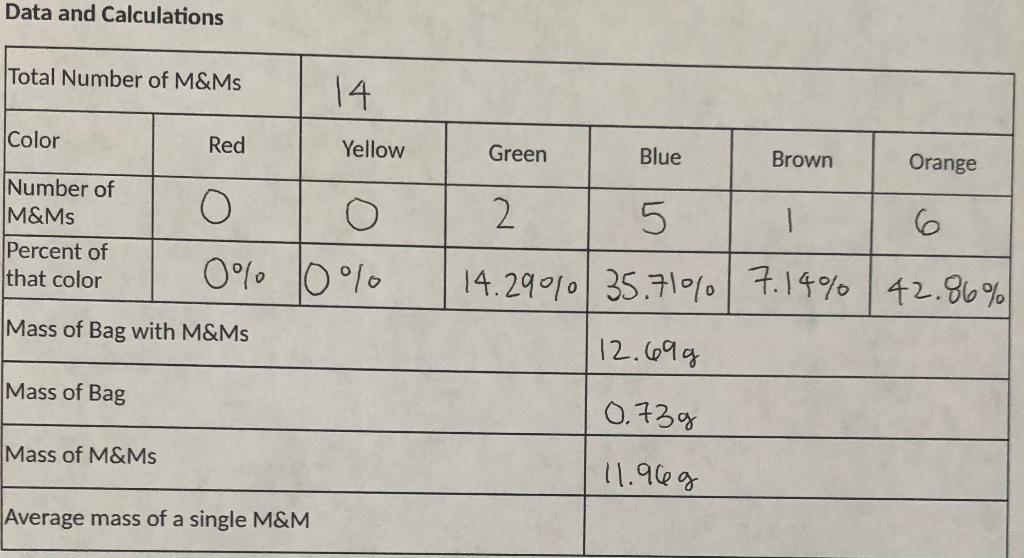 Data and Calculations
Total Number of M&Ms 14
Color Red Yellow Green Blue Brown Orange
Number of
M&Ms 0 0 2 5 1 6
Percent of
that color 0% 0% 14.29% 35.71% 7.14% 42.86%
Mass of Bag with M&Ms 12.69g
Mass of Bag 0.73g
Mass of M&Ms 11.96g
Average mass of a single M&M